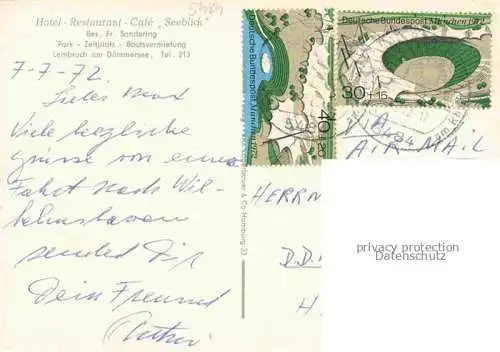 Hotel - Restaurant - Café „Seeblick"
Bes. Fr. Sandering
Park - Zeltplatz - Bootsvermietung
Lembruch am Dümmersee, Tel. 213
7-7-72.
Liebes Max
Viele herzliche
Grüsse von einer
Fahrt nach Wil-
helmshaven
sendet Dir
Dein Freund
Deutsche Bundespost München 1972
40+20
Deutsche Bundespost München 1972
30+15
VIA
AIR MAIL
HERRN
D.D.
H.
& Co Hamburg 33
privacy protection
Datenschutz